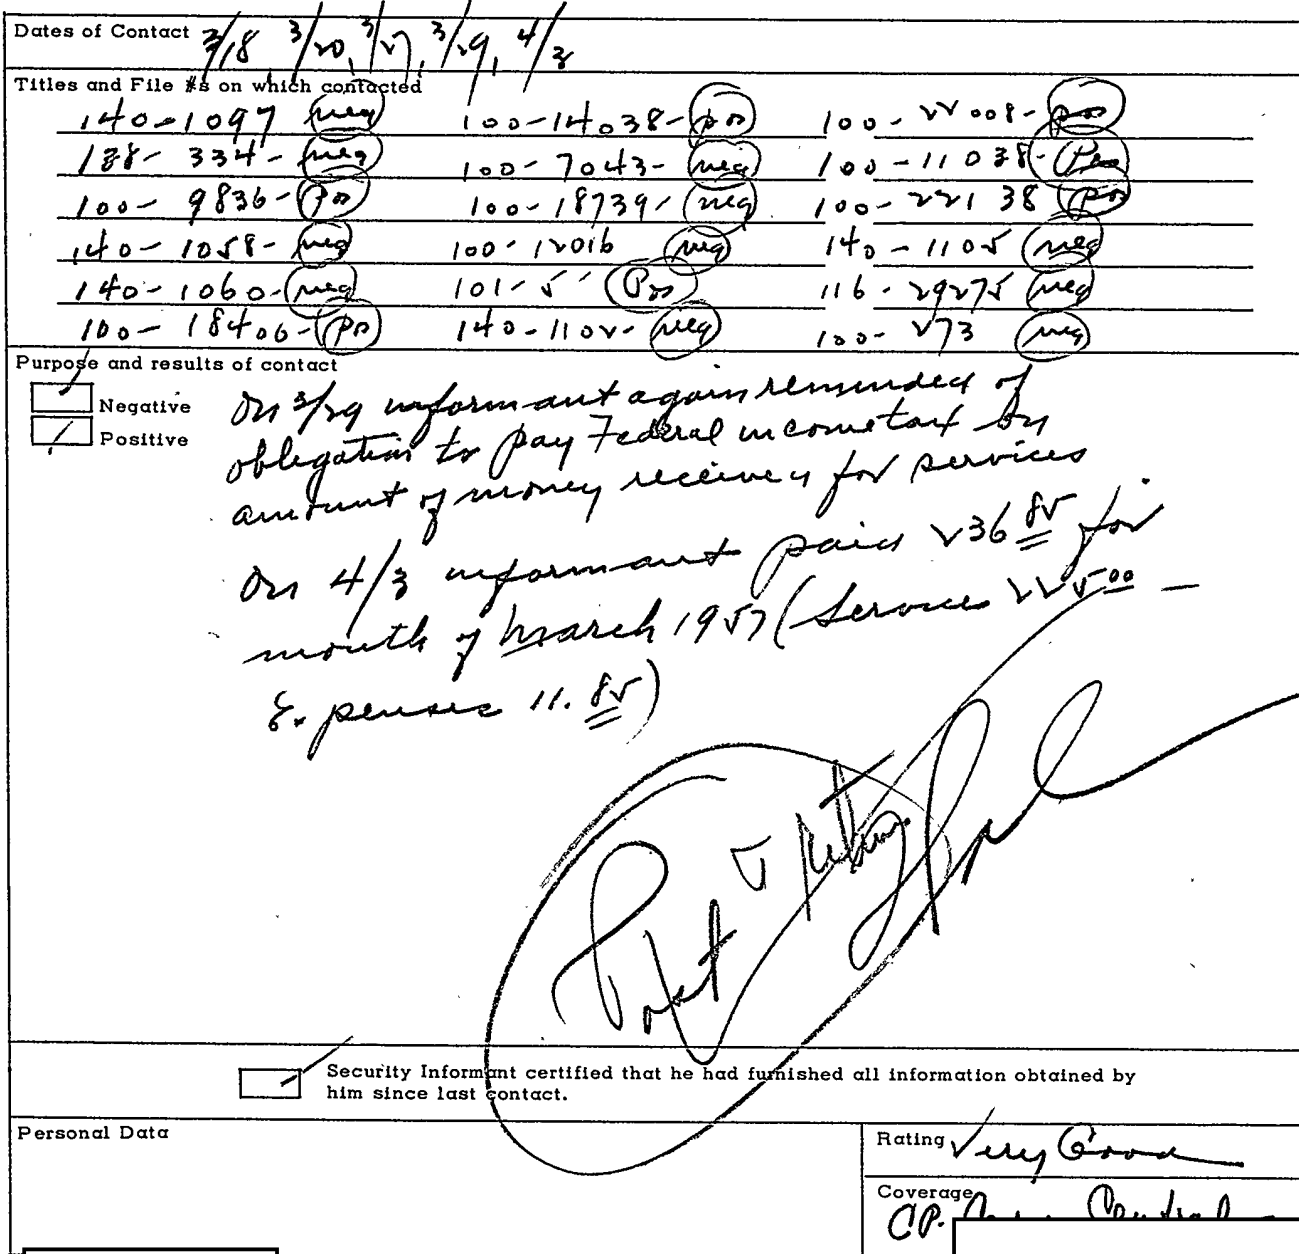 Dates of Contact 3/18, 3/20, 3/27, 3/29, 4/3
Titles and File #s on which contacted
140-1097 neg 100-14038-pos 100-22008-pos
138-334-neg 100-7043-neg 100-11038-Pos
100-9836-pos 100-18739-neg 100-22138 pos
140-1058-neg 100-12016 neg 140-1105 neg
140-1060-neg 101-5 Pos 116-29275 neg
100-18406-pos 140-1102-neg 100-273 neg
Purpose and results of contact
Negative
Positive
On 3/29 informant again reminded of
obligation to pay Federal income tax on
amount of money received for services
On 4/3 informant paid 236 85 for
month of March 1957 (Services 225 00 -
Expenses 11.85)
Security Informant certified that he had furnished all information obtained by
him since last contact.
Personal Data
Rating Very Good
Coverage
CP. Central